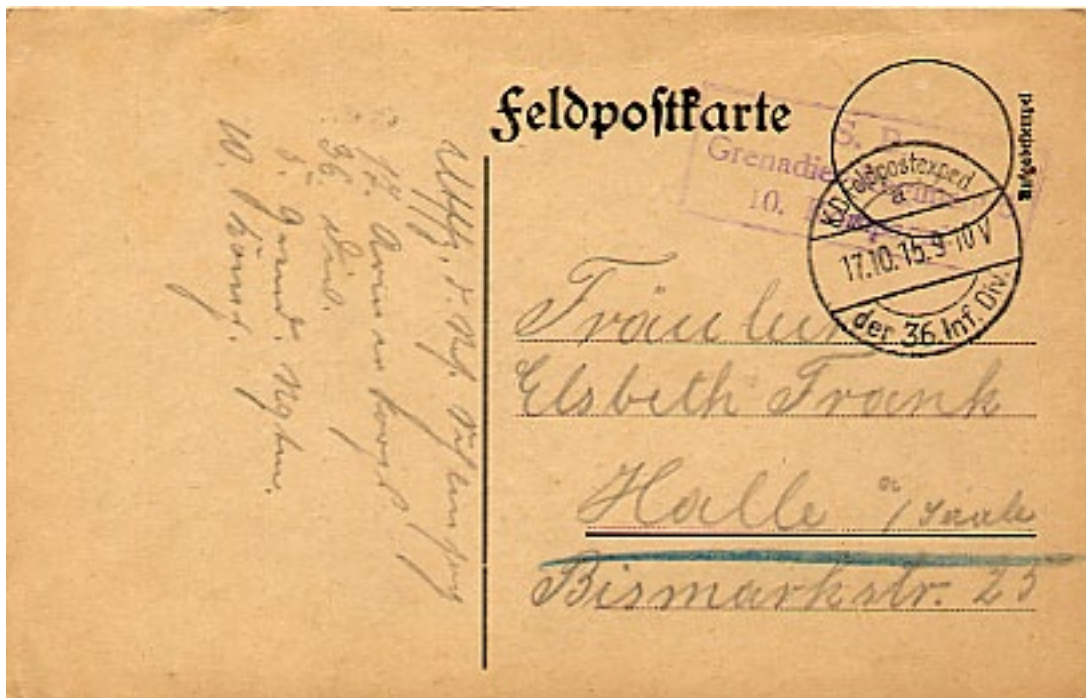 Feldpostkarte
Aufgabestempel
S. B.
10.
K.D. Feldpostexped
a
17.10.15.9-10V
der 36. Inf. Div.
Fräulein
Elsbeth Frank
Halle a/Saale
Bismarkstr. 25
17. Armeekorps
36. Divis.
5. Grend. Rgtm.
10. Komp.